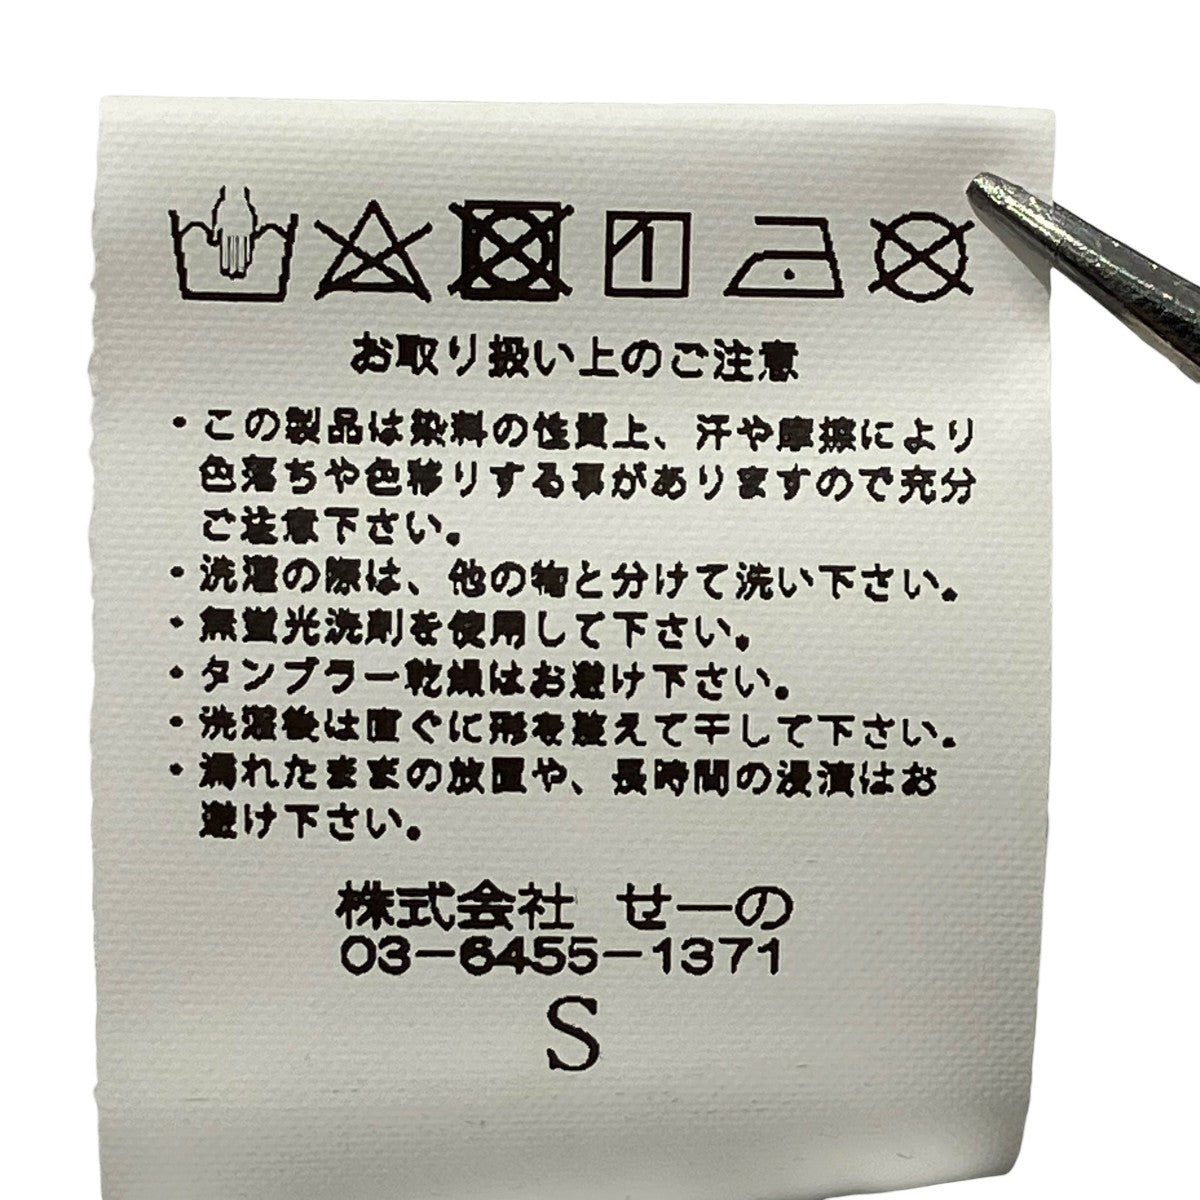 お取り扱い上のご注意
・この製品は染料の性質上、汗や摩擦により
色落ちや色移りする事がありますので充分
ご注意下さい。
・洗濯の際は、他の物と分けて洗い下さい。
・無蛍光洗剤を使用して下さい。
・タンブラー乾燥はお避け下さい。
・洗濯後は直ぐに形を整えて干して下さい。
・濡れたままの放置や、長時間の浸漬はお
避け下さい。
株式会社 せーの
03-6455-1371
S